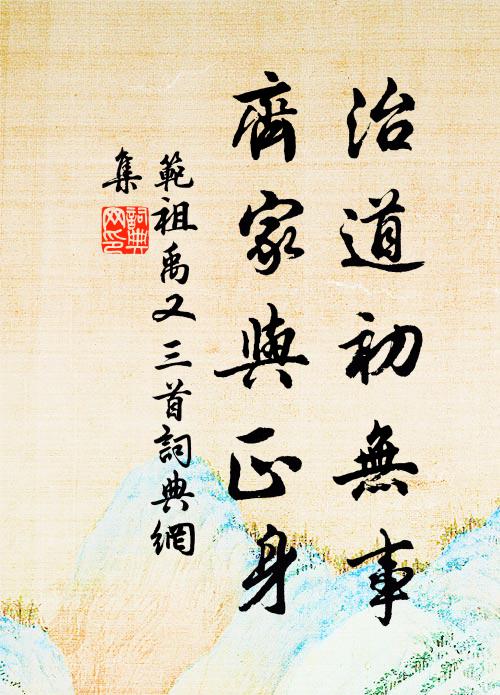 治道初無事
齊家與正身
範祖禹又三首詞典網
集
詞典
网印